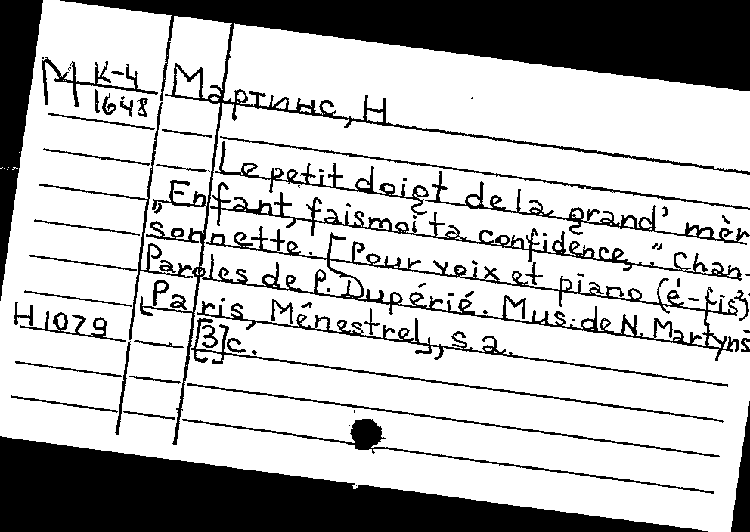 М К-4 Мартинс, Н
1648
Le petit doigt de la grand' mèr
„Enfant, faismoi ta confidence,." Chan-
sonnette. [Pour voix et piano (é-fis²)
Paroles de P. Dupérié. Mus: de N. Martyns
[Paris, Ménestrel], s.a.
H1079 [3]c.